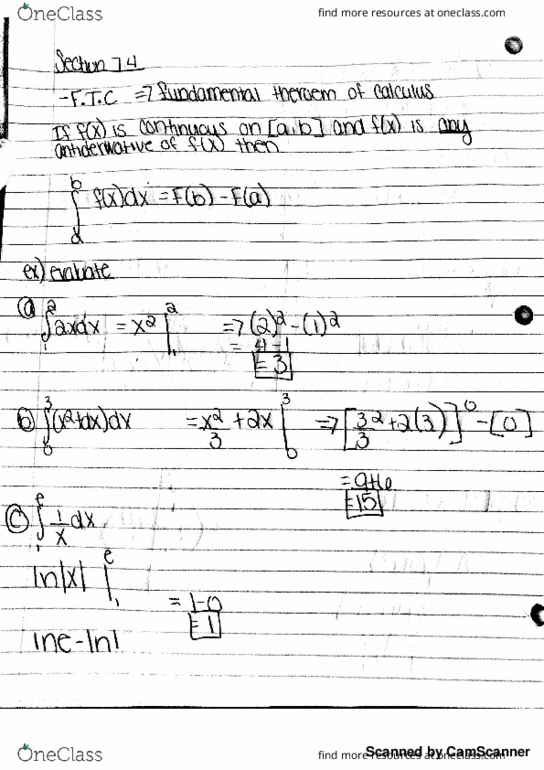 OneClass find more resources at oneclass.com
Section 7.4
-F.T.C => fundamental theroem of calculus
If f(x) is continuous on [a,b] and f(x) is any
antiderivative of f(x) then
b
∫ f(x)dx = F(b) - F(a)
a
ex) evaluate
(a) ∫₁² 2xdx = x² |₁² => (2)² - (1)²
= 4 - 1
= 3
(b) ∫₀³ (x²+2)dx = x²/3 + 2x |₀³ => [3²/3 + 2(3)]⁰ - [0]
= 9+6
= 15
(c) ∫₁ᵉ 1/x dx
ln|x| |₁ᵉ
= 1-0
= 1
lne - ln1
OneClass find more resources at oneclass.com
Scanned by CamScanner